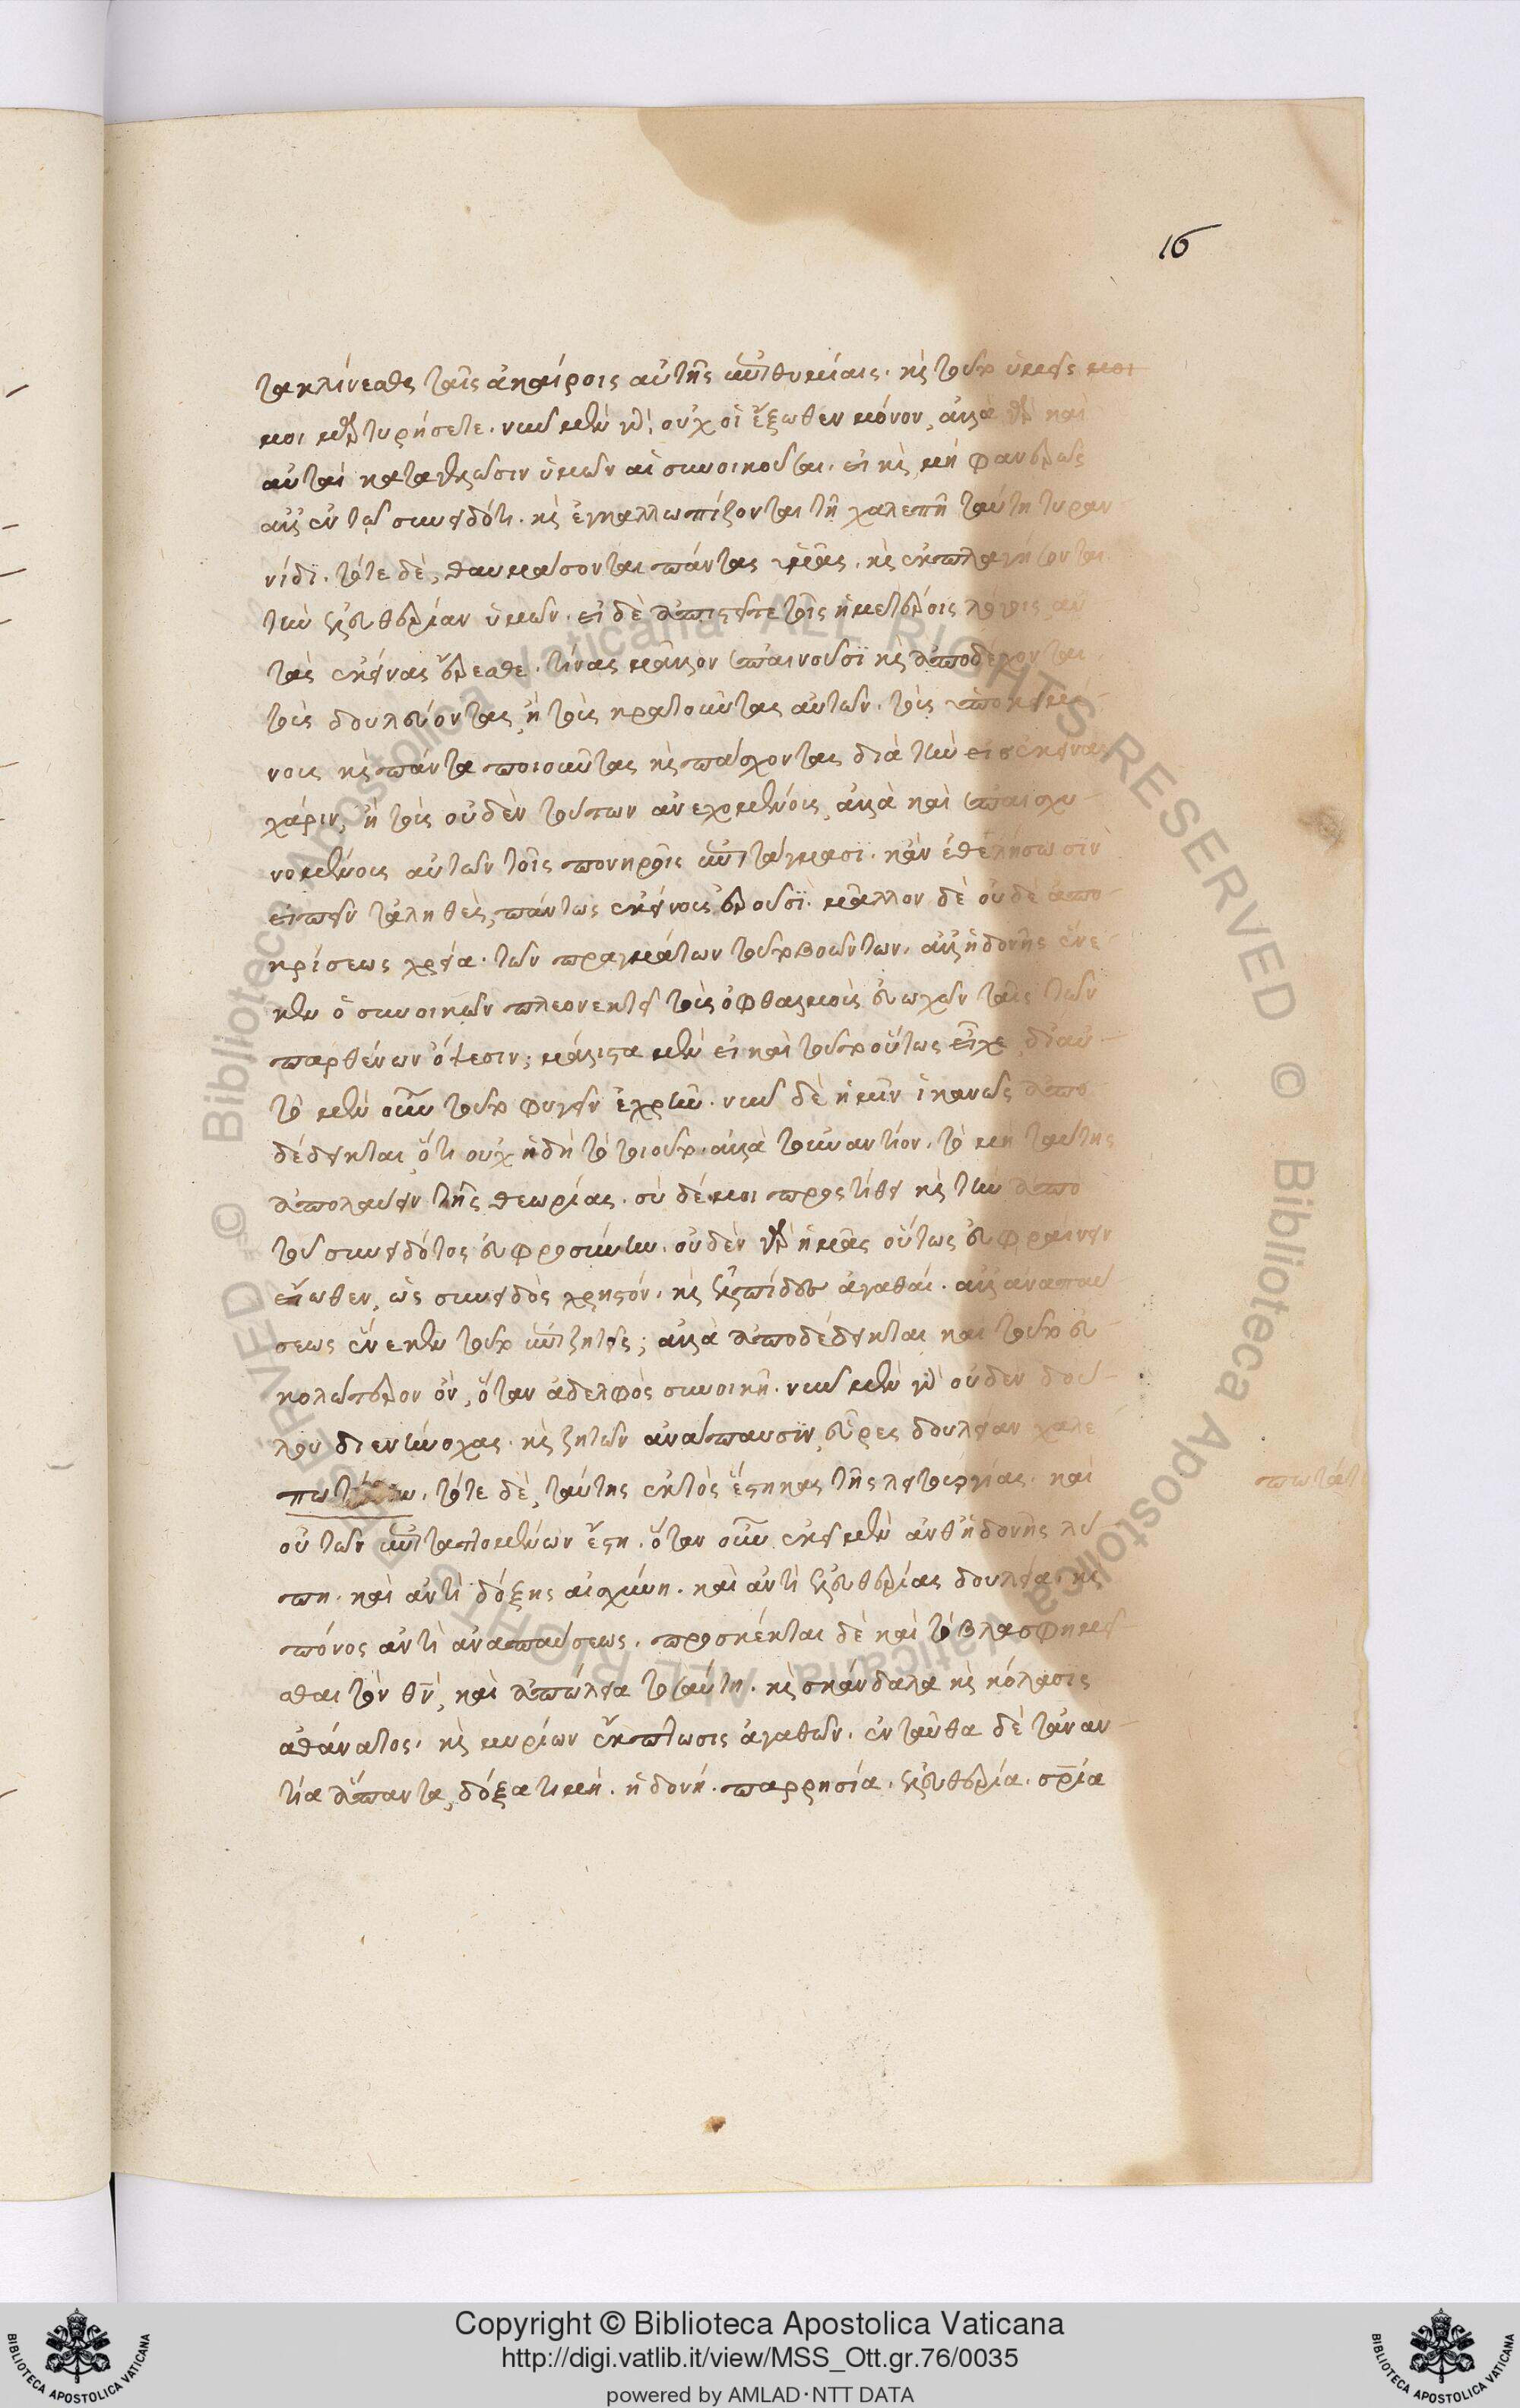 16
τακλίνεσθε ταῖς ἀκαίροις αὐτῆς ἐπιθυμίαις. καὶ τοῦτο ὑμεῖς μοι
μοι μαρτυρήσετε. νῦν μὲν γὰρ οὐχ οἱ ἔξωθεν μόνον, ἀλλὰ γὰρ καὶ
αὐταὶ καταγελῶσιν ὑμῶν αἱ συνοικοῦσαι. εἰ καὶ μὴ φανερῶς
ἀλλ' ἐν τῷ συνειδότι. καὶ ἐγκαλλωπίζονται τῇ χαλεπῇ ταύτῃ τυραν-
νίδι. τότε δὲ, θαυμάσονται πάντας ὑμᾶς. καὶ ἐκπλαγήσονται
τὴν ἐλευθερίαν ὑμῶν. εἰ δὲ ἀπιστεῖτε τοῖς ἡμετέροις λόγοις αὐ
τὰς ἐκείνας ἔρεσθε. τίνας μᾶλλον ἐπαινοῦσι καὶ ἀποδέχονται.
τοὺς δουλεύοντας, ἢ τοὺς κρατοῦντας αὐτῶν. τοὺς ὑποκειμέ-
νους καὶ πάντα ποιοῦντας καὶ πάσχοντας διὰ τὴν εἰς ἐκείνας
χάριν, ἢ τοὺς οὐδὲν τούτων ἀνεχομένους, ἀλλὰ καὶ ἐπαισχυ-
νομένους αὐτῶν τοῖς πονηροῖς ἐπιτάγμασι. κἂν ἐθελήσωσιν
εἰπεῖν τἀληθὲς, πάντως ἐκείνους ἐροῦσι. μᾶλλον δὲ οὐδὲ ἀπο-
κρίσεως χρεία. τῶν πραγμάτων τοῦτο βοώντων. ἀλλ' ἡδονῆς ἕνε-
κεν ὁ συνοικῶν πλεονεκτεῖ τοὺς ὀφθαλμοὺς εὐωχῶν ταῖς τῶν
παρθένων ὄψεσιν; μάλιστα μὲν εἰ καὶ τοῦτο οὕτως εἶχε, δι' αὐ-
τὸ μὲν οὖν τοῦτο φυγεῖν ἐχρῆν. νῦν δὲ ἡμῖν ἱκανῶς ἀπο
δέδεικται, ὅτι οὐχ ἡδὺ τὸ τοιοῦτο. ἀλλὰ τοὐναντίον. τὸ μὴ ταύτης
ἀπολαύειν τῆς θεωρίας. σὺ δέ μοι προστίθει καὶ τὴν ἀπὸ
τοῦ συνειδότος εὐφροσύνην. οὐδὲν γὰρ ἡμᾶς οὕτως εὐφραίνειν
εἴωθεν, ὡς συνειδὸς χρηστόν. καὶ ἐλπίδες ἀγαθαί. ἀλλ' ἀναπαύ-
σεως ἕνεκεν τοῦτο ἐπιζητεῖς; ἀλλὰ ἀποδέδεικται καὶ τοῦτο εὐ-
κολώτερον ὂν, ὅταν ἀδελφὸς συνοικῇ. νῦν μὲν γὰρ οὐδὲν δού-
λου διενήνοχας. καὶ ζητῶν ἀνάπαυσιν, εὗρες δουλείαν χαλε
πωτάτην. τότε δὲ, ταύτης ἐκτὸς ἕστηκας τῆς λειτουργίας. καὶ
πωτάτ
οὐ τῶν ἐπιταττομένων ἔσῃ. ὅταν οὖν ἐκεῖ μὲν ἀνθ' ἡδονῆς λύ
πη. καὶ ἀντὶ δόξης αἰσχύνη. καὶ ἀντὶ ἐλευθερίας δουλεία. καὶ
πόνος ἀντὶ ἀναπαύσεως. πρόσκειται δὲ καὶ τὸ βλασφημεῖ
σθαι τὸν θν, καὶ ἀπώλεια τοσαύτη. καὶ σκάνδαλα καὶ κόλασις
ἀθάνατος. καὶ μυρίων ἔκπτωσις ἀγαθῶν. ἐνταῦθα δὲ τἀναν-
τία ἅπαντα, δόξα τιμή. ἡδονή. παρρησία. ἐλευθερία. σρία
Copyright © Biblioteca Apostolica Vaticana
http://digi.vatlib.it/view/MSS_Ott.gr.76/0035
powered by AMLAD·NTT DATA